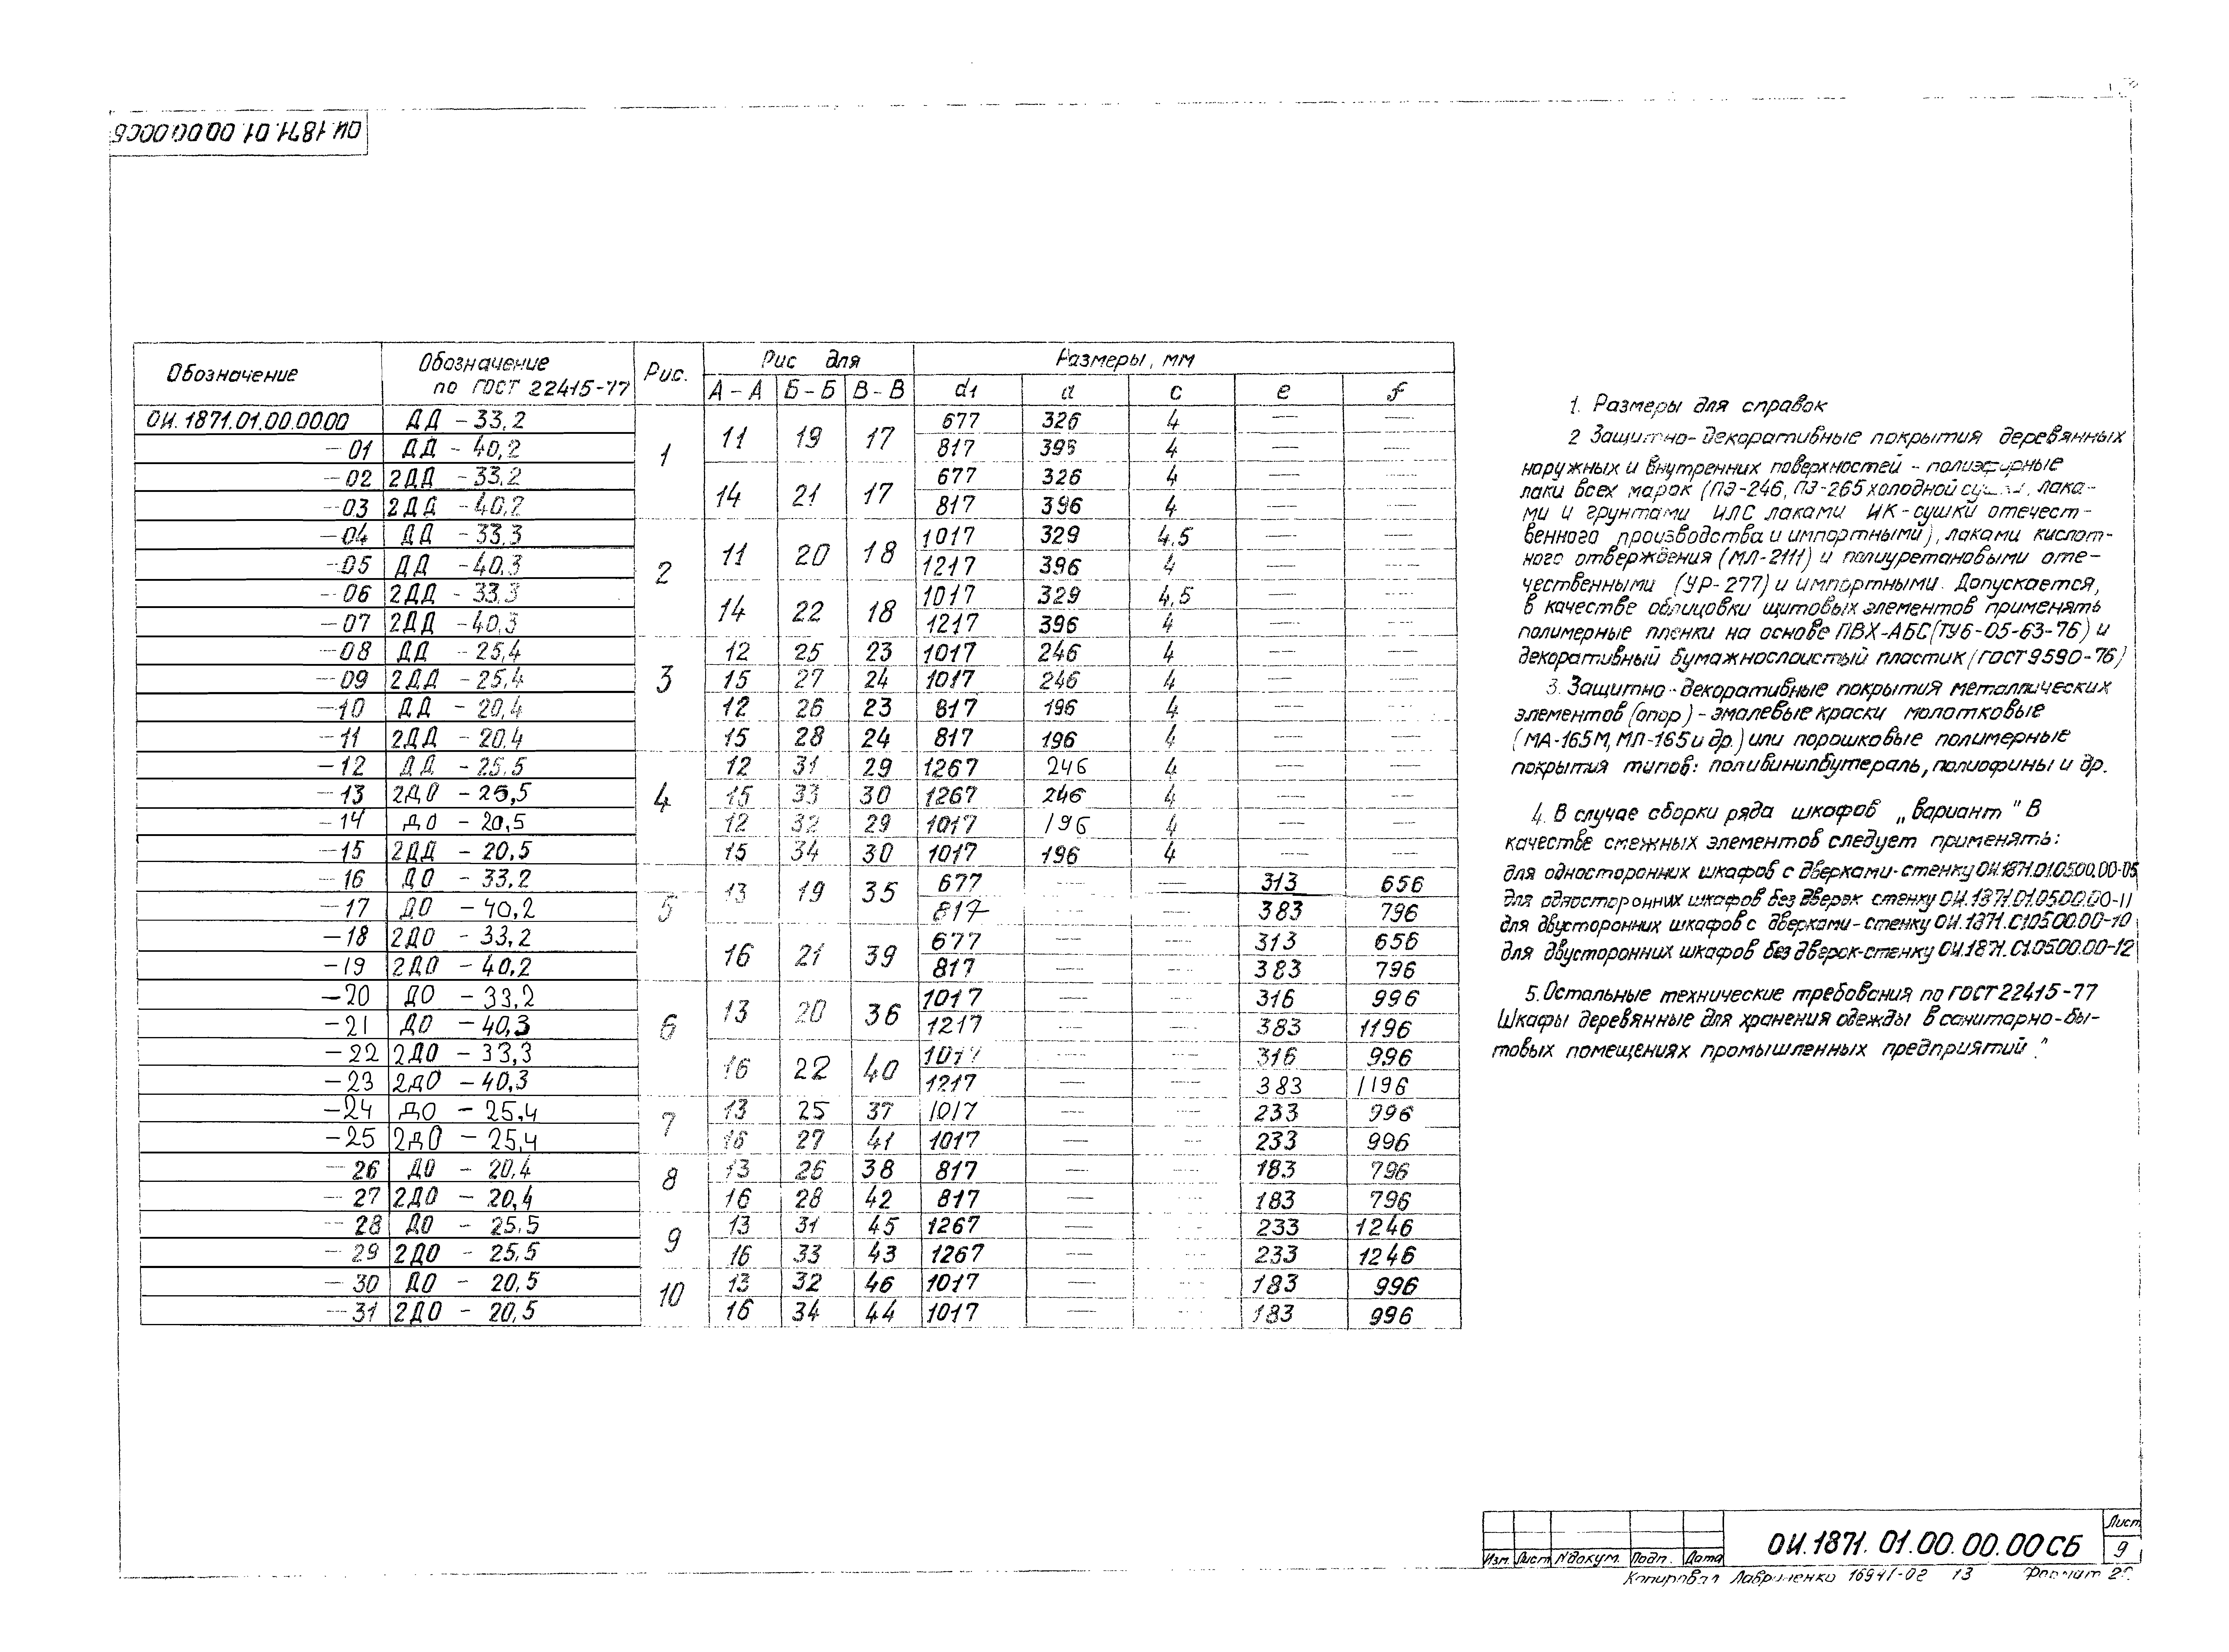 ОИ.1871.01.00.00.00СБ
Обозначение Обозначение по ГОСТ 22415-77 Рис. Рис для Размеры, мм
А-А Б-Б В-В d1 a c e f
ОИ.1871.01.00.00.00 ДД -33,2 1 11 19 17 677 326 4 — —
-01 ДД - 40,2 817 396 4 — —
-02 2ДД -33,2 14 21 17 677 326 4 — —
-03 2ДД -40,2 817 396 4 — —
-04 ДД -33,3 2 11 20 18 1017 329 4,5 — —
-05 ДД -40,3 1217 396 4 — —
-06 2ДД -33,3 14 22 18 1017 329 4,5 — —
-07 2ДД -40,3 1217 396 4 — —
-08 ДД -25,4 3 12 25 23 1017 246 4 — —
-09 2ДД -25,4 15 27 24 1017 246 4 — —
-10 ДД -20,4 12 26 23 817 196 4 — —
-11 2ДД -20,4 15 28 24 817 196 4 — —
-12 ДД -25,5 4 12 31 29 1267 246 4 — —
-13 2ДО -25,5 15 33 30 1267 246 4 — —
-14 ДО -20,5 12 32 29 1017 196 4 — —
-15 2ДД -20,5 15 34 30 1017 196 4 — —
-16 ДО -33,2 5 13 19 35 677 — — 313 656
-17 ДО -40,2 817 — — 383 796
-18 2ДО -33,2 16 21 39 677 — — 313 656
-19 2ДО -40,2 817 — — 383 796
-20 ДО -33,2 6 13 20 36 1017 — — 316 996
-21 ДО -40,3 1217 — — 383 1196
-22 2ДО -33,3 16 22 40 1017 — — 316 996
-23 2ДО -40,3 1217 — — 383 1196
-24 ДО -25,4 7 13 25 37 1017 — — 233 996
-25 2ДО -25,4 16 27 41 1017 — — 233 996
-26 ДО - 20,4 8 13 26 38 817 — — 183 796
-27 2ДО - 20,4 16 28 42 817 — — 183 796
-28 ДО - 25,5 9 13 31 45 1267 — — 233 1246
-29 2ДО - 25,5 16 33 43 1267 — — 233 1246
-30 ДО - 20,5 10 13 32 46 1017 — — 183 996
-31 2ДО - 20,5 16 34 44 1017 — — 183 996
1. Размеры для справок
2 Защитно-декоративные покрытия деревянных
наружных и внутренних поверхностей - полиэфирные
лаки всех марок (ПЭ-246, ПЭ-265 холодной лака-
ми и грунтами ИЛС лаками ИК-сушки отечест-
венного производства и импортными), лаками кислот-
ного отверждения (МЛ-2111) и полиуретановыми оте-
чественными (УР-277) и импортными. Допускается,
в качестве облицовки щитовых элементов применять
полимерные пленки на основе ПВХ-АБС(ТУ6-05-63-76) и
декоративный бумажнослоистый пластик (ГОСТ 9590-76)
3. Защитно-декоративные покрытия металлических
элементов (опор) - эмалевые краски молотковые
(МА-165М, МЛ-165 и др.) или порошковые полимерные
покрытия типов: поливинилбутераль, полиофины и др.
4. В случае сборки ряда шкафов „вариант" В
качестве смежных элементов следует применять:
для односторонних шкафов с дверками-стенку ОИ.1871.01.05.00.00-05
для односторонних шкафов без дверок стенку ОИ.1871.01.05.00.00-11
для двусторонних шкафов с дверками-стенку ОИ.1871.01.05.00.00-10
для двусторонних шкафов без дверок-стенку ОИ.1871.01.05.00.00-12
5. Остальные технические требования по ГОСТ 22415-77
Шкафы деревянные для хранения одежды в санитарно-бы-
товых помещениях промышленных предприятий."
Изм. Лист №докум. Подп. Дата ОИ.1871.01.00.00.00СБ Лист 9
Копировал 16941-02 13 Формат